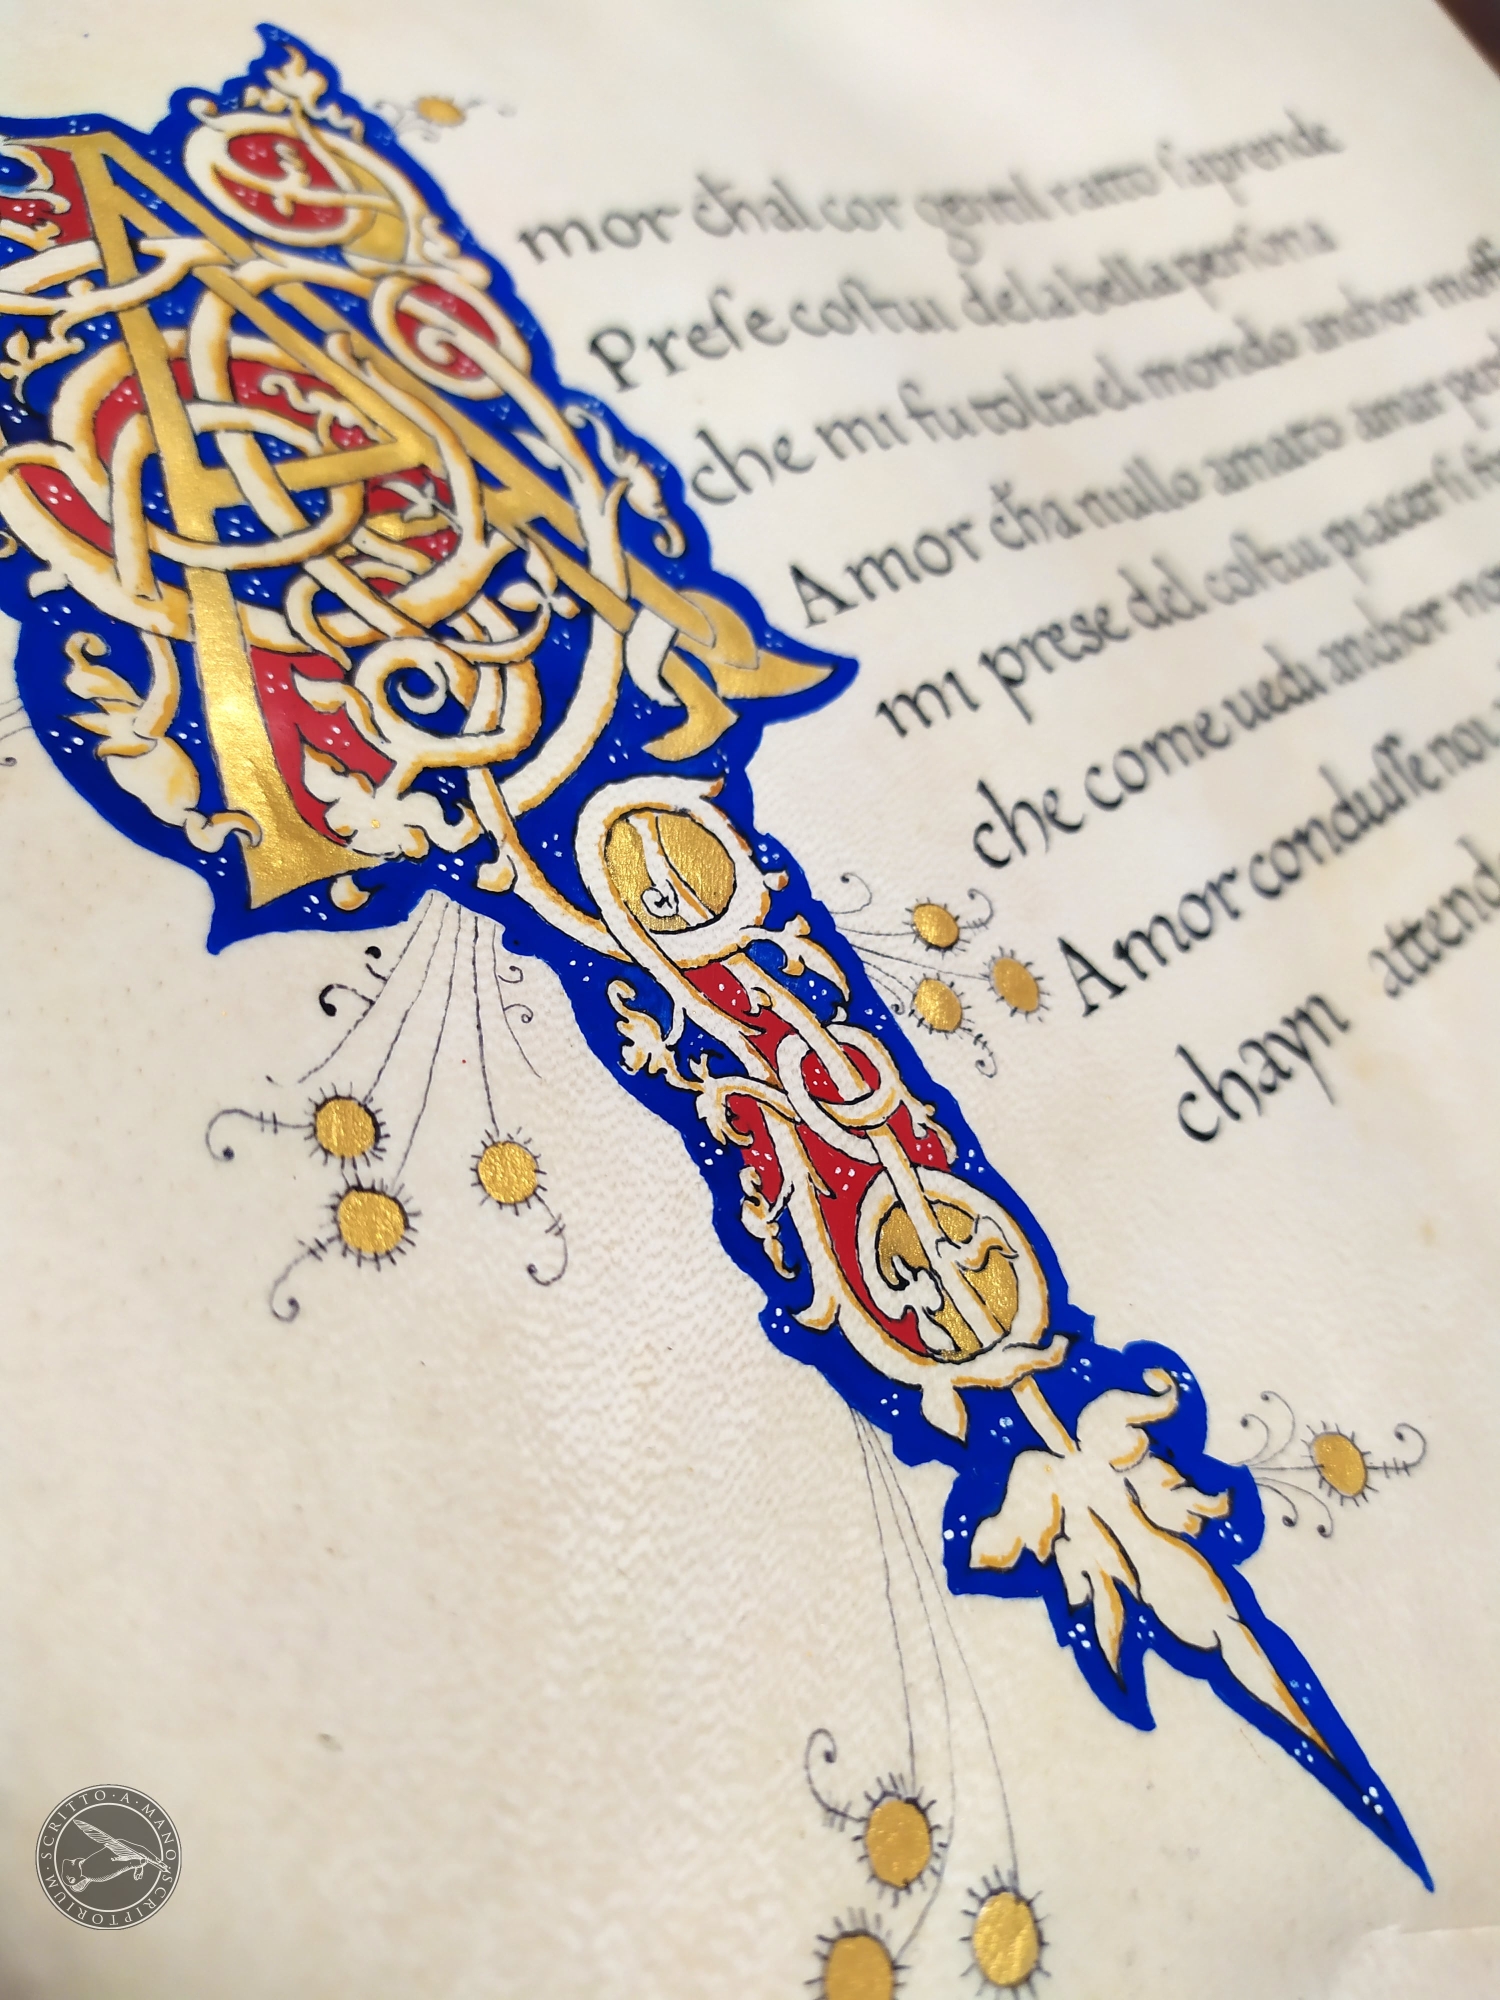 Amor ch̄al cor gentil ratto ſaprende
Preſe coſtui dela bella perſona
che mi fu tolta el mondo anchor moſſ
Amor ch̄a nullo amato amar perd
mi prese del coſtui piacer ſi fr
che come uedi anchor non
Amor conduſſe noi
chayn attend
SCRITTO·A·MANO·SCRIPTORIUM·